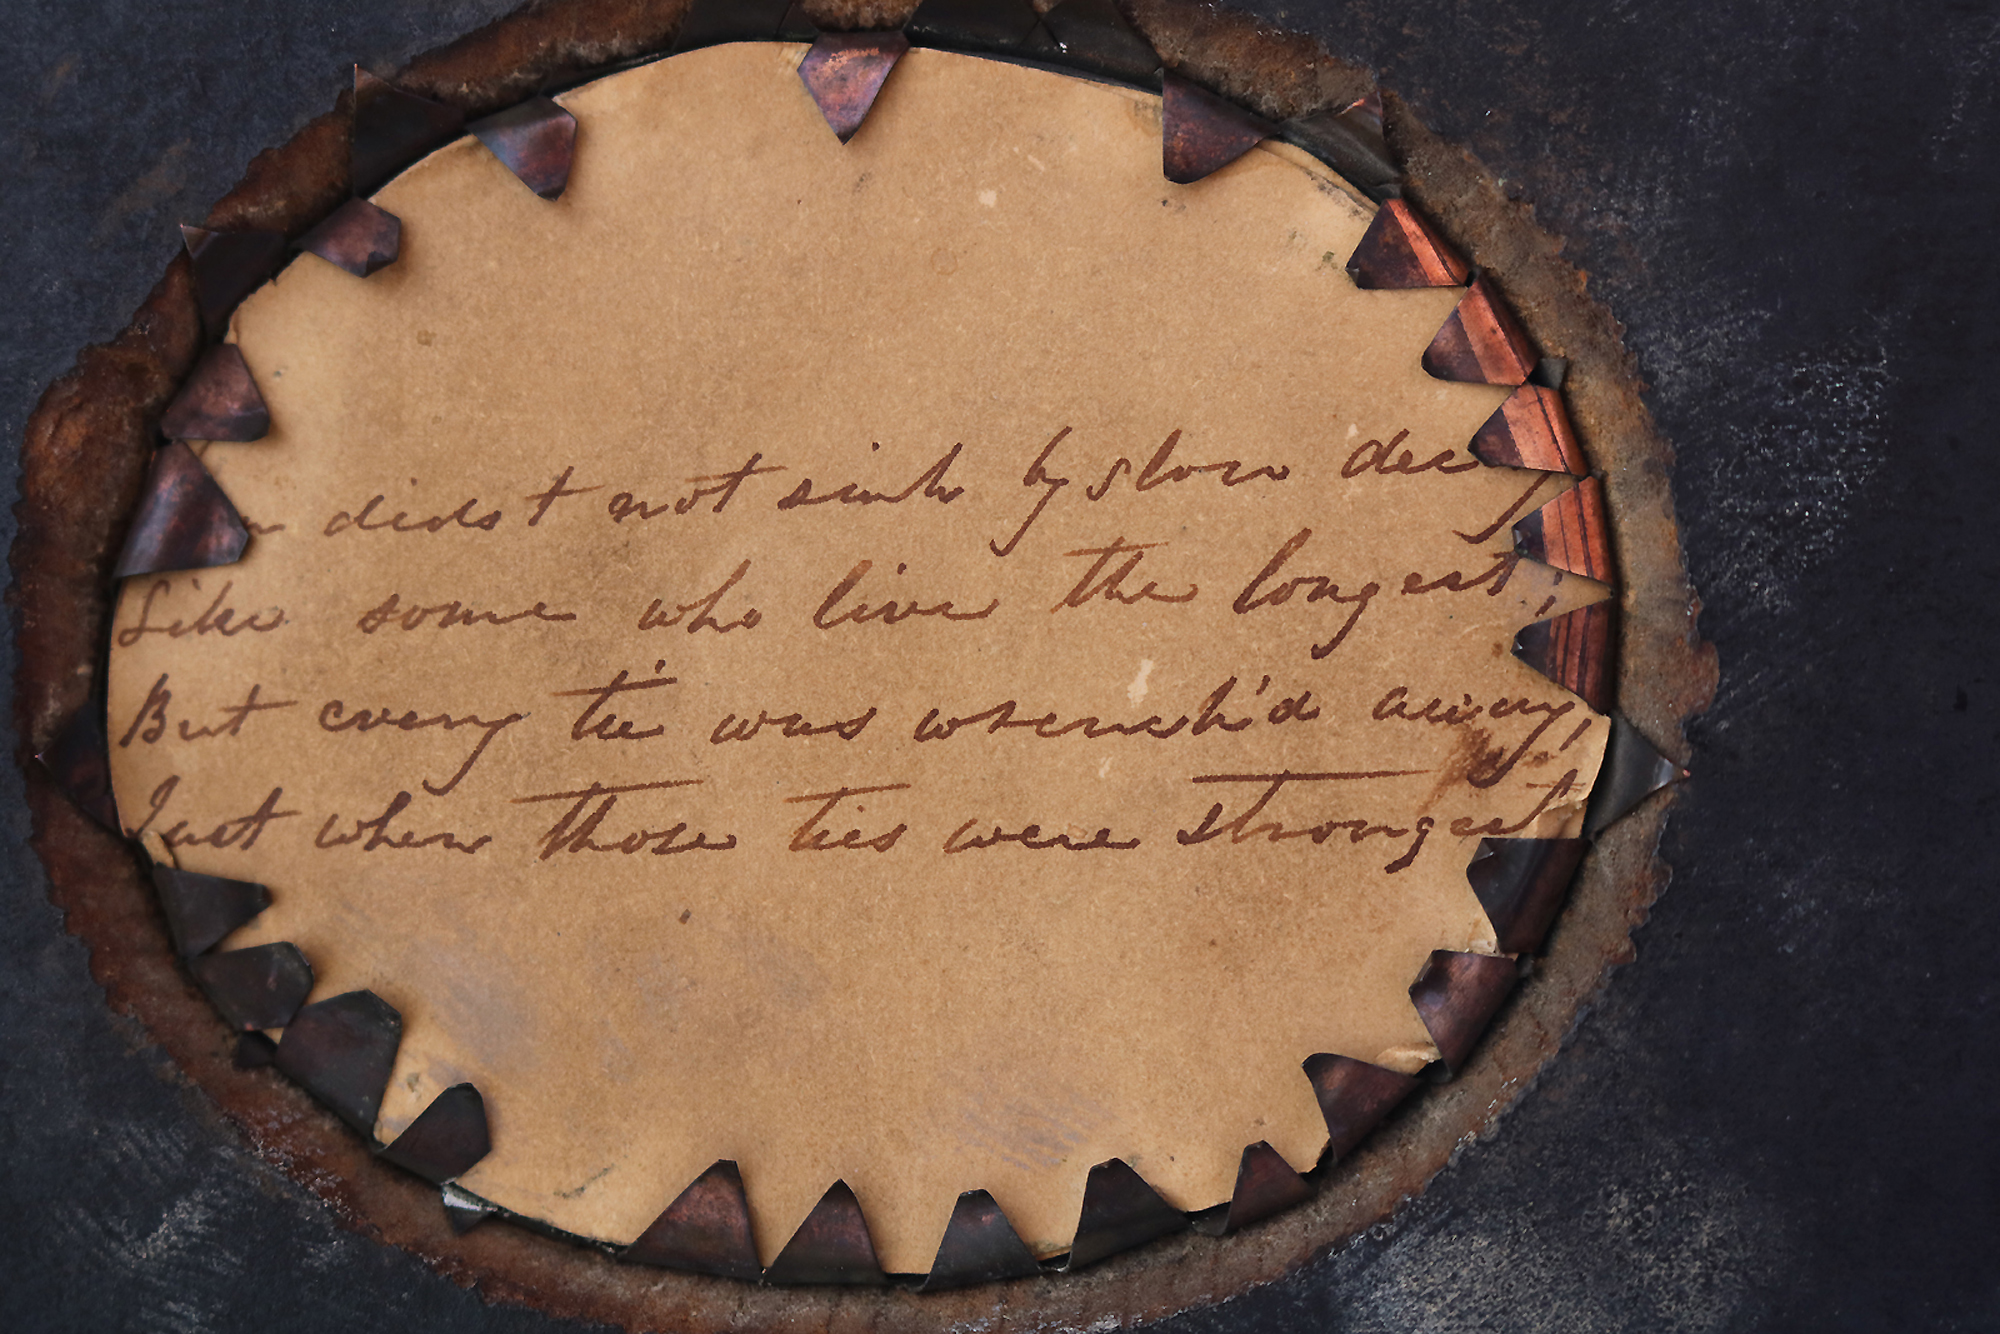 didst not sink by slow dec y
Like some who live the longest;
But every tie was wrench'd away,
Just when those ties were strongest